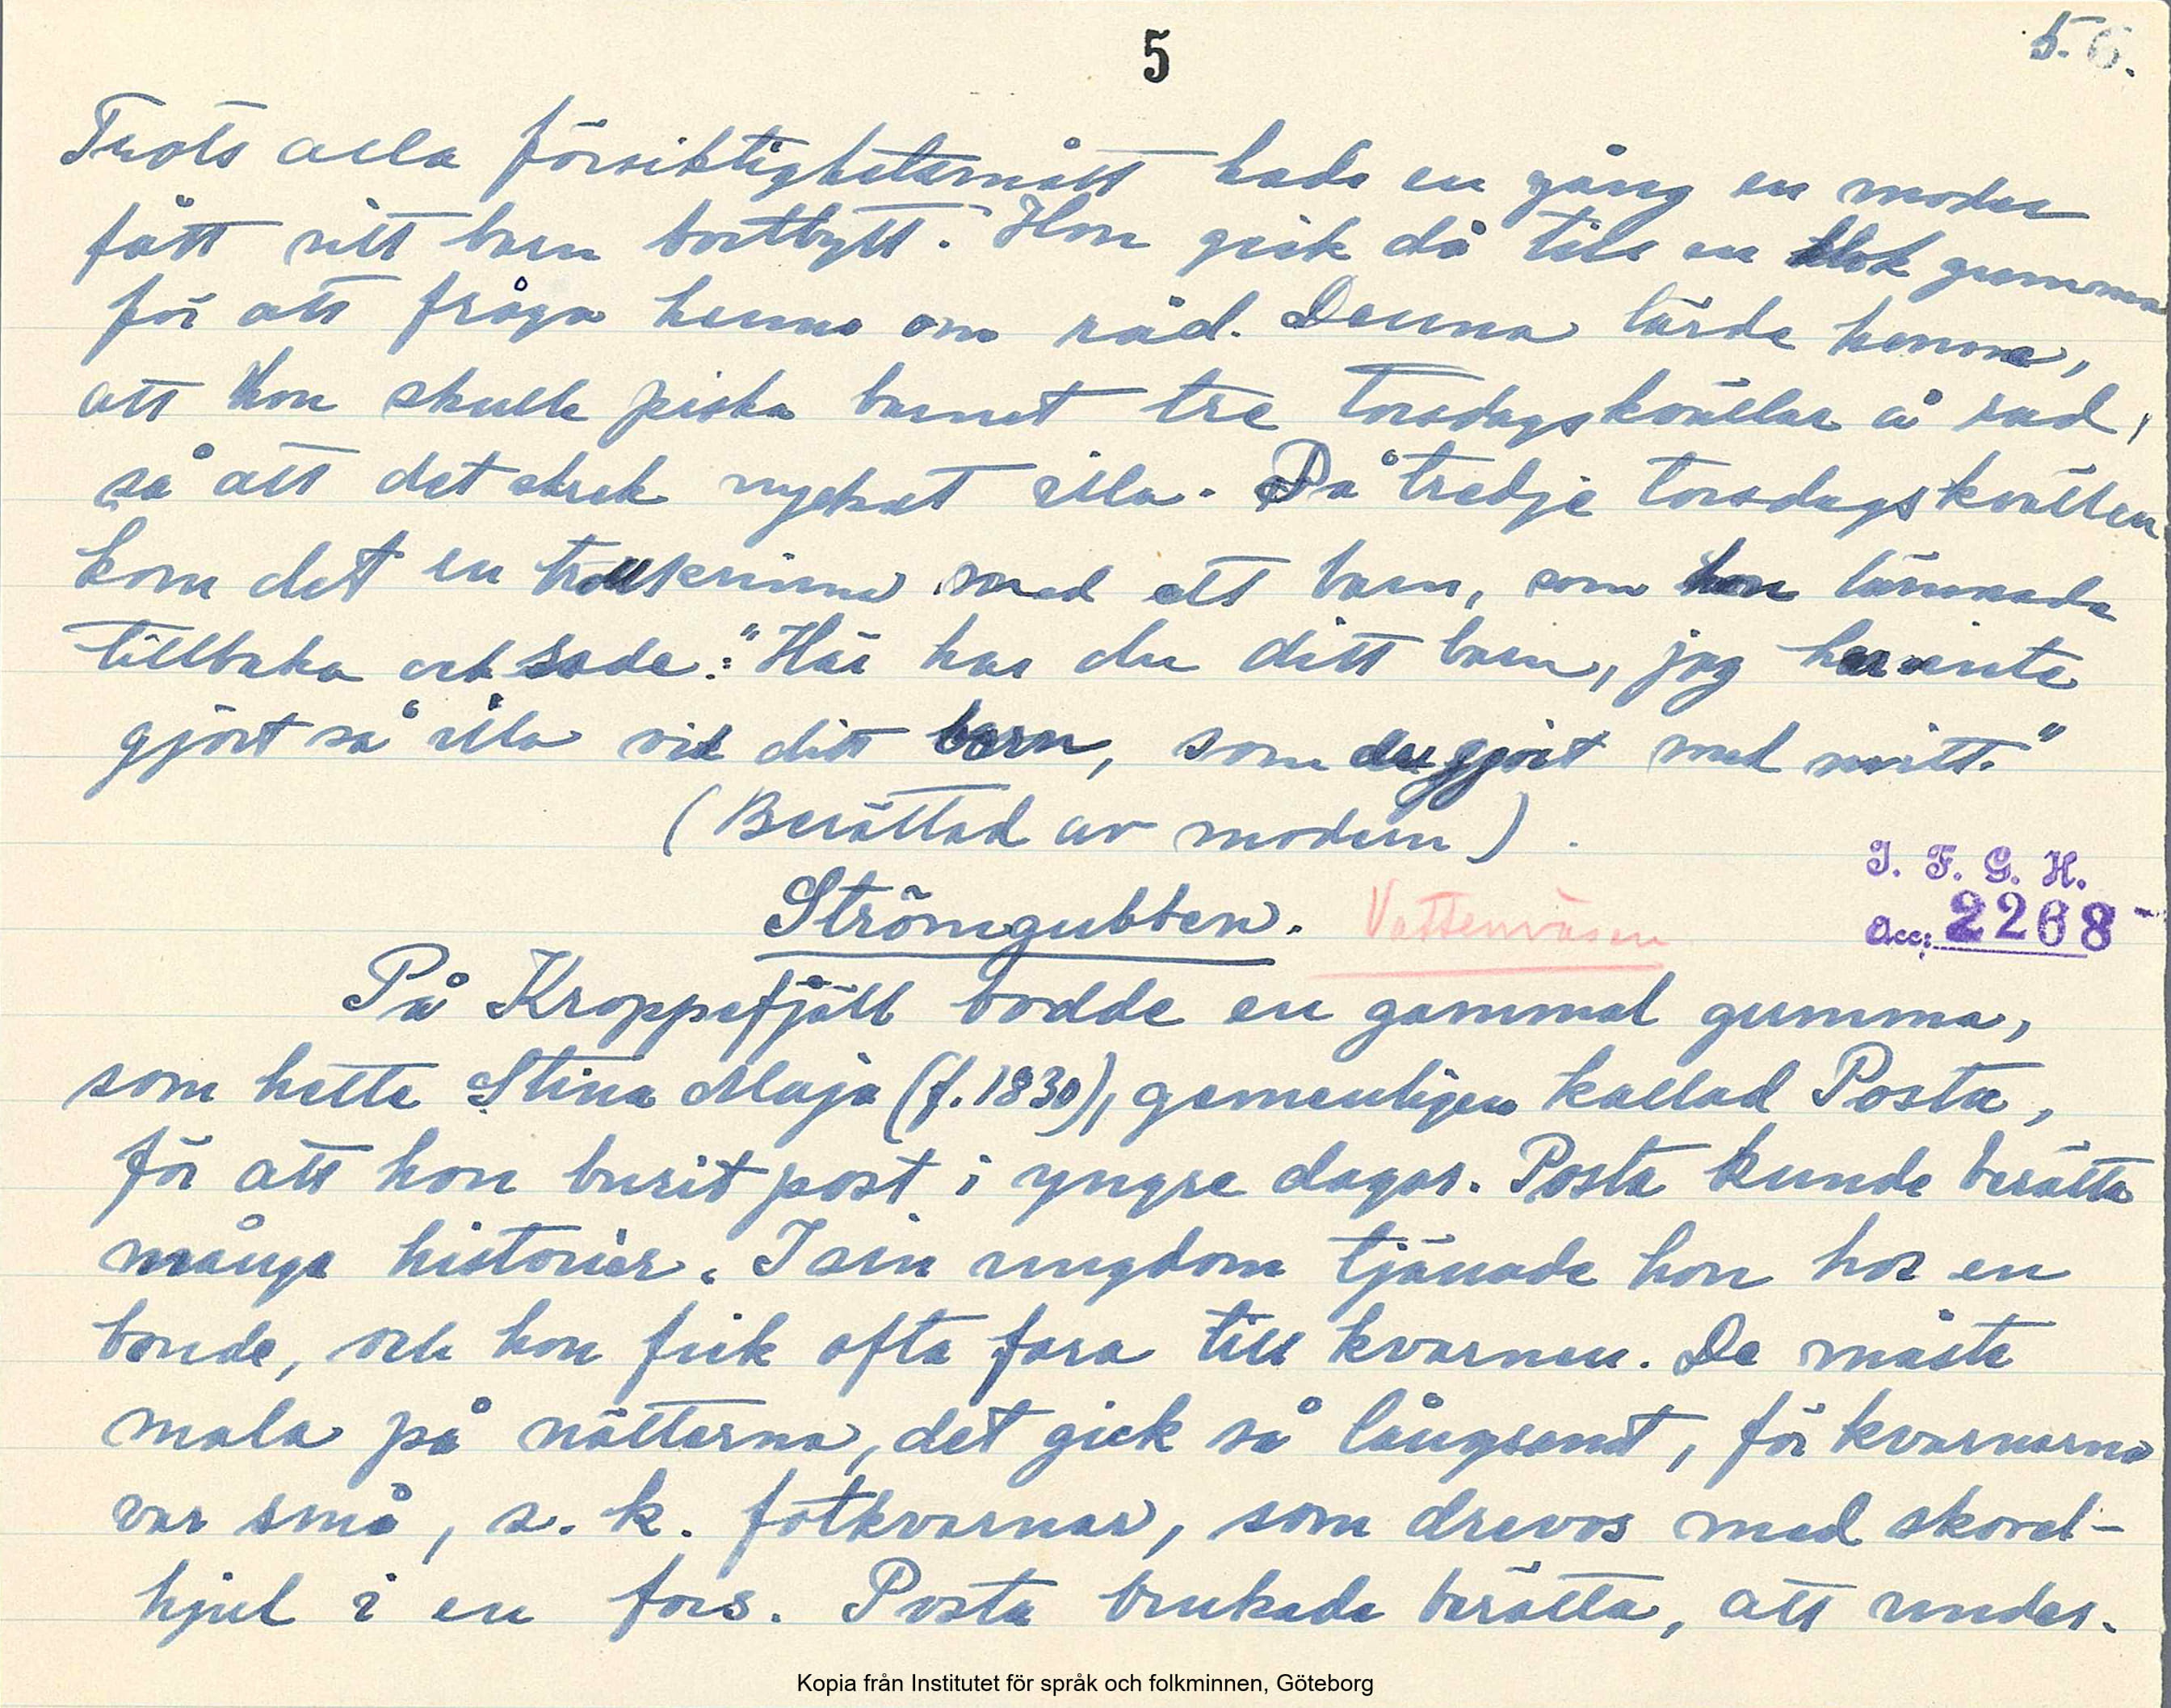 5
5. 6.
Trots alla försiktighetsmått hade en gång en moder
fått sitt barn bortbytt. Hon gick då till en klok gumma
för att fråga henne om råd. Denna lärde henne,
att hon skulle piska barnet tre torsdagskvällar å rad,
så att det skrek mycket illa. På tredje torsdagskvällen
kom det en trollkvinna med ett barn, som hon lämnade
tillbaka och sade: "Här har du ditt barn, jag har inte
gjort så illa vid ditt barn, som du gjort med mitt."
(Berättad av modern).
Strömgubben. Vattenväsen
I. F. G. H.
Acc: 2268
På Kroppefjäll bodde en gammal gumma,
som hette Stina Maja (f. 1830), gemenligen kallad Posta,
för att hon burit post i yngre dagar. Posta kunde berätta
många historier. I sin ungdom tjänade hon hos en
bonde, och hon fick ofta fara till kvarnen. De måste
mala på nätterna, det gick så långsamt, för kvarnarna
var små, s. k. fotkvarnar, som drevos med skovel-
hjul i en fors. Posta brukade berätta, att under.
Kopia från Institutet för språk och folkminnen, Göteborg